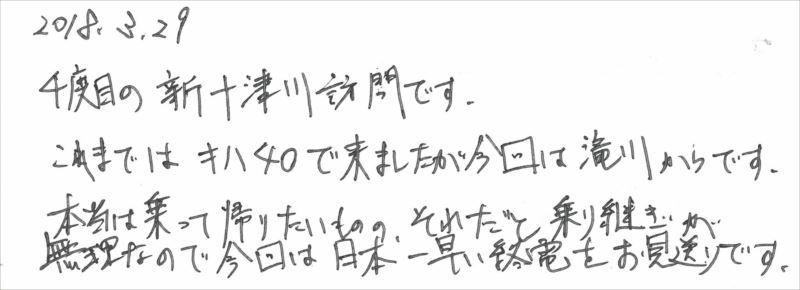 2018.3.29
4度目の新十津川訪問です.
これまでは キハ40で来ましたが今回は滝川からです.
本当は乗って帰りたいものの、それだと乗り継ぎが
無理なので今回は日本一早い終電をお見送りです.